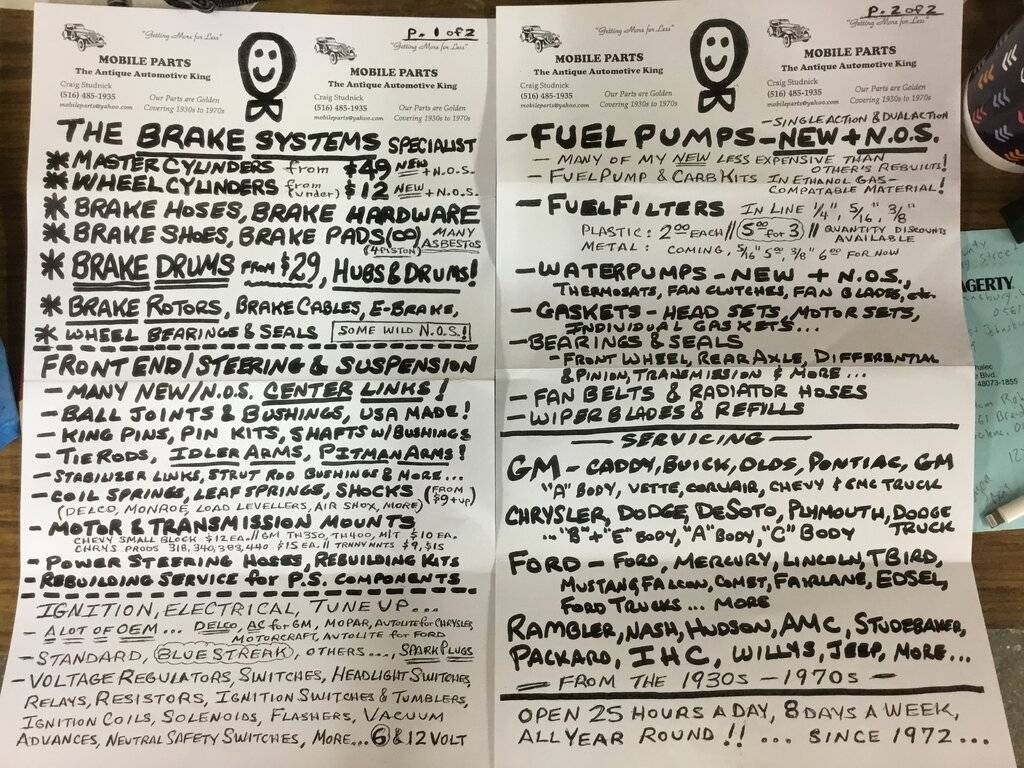 P. 1 of 2
"Getting More for Less"
"Getting More for Less"
MOBILE PARTS
The Antique Automotive King
MOBILE PARTS
The Antique Automotive King
Craig Studnick
(516) 485-1935
mobileparts@yahoo.com
Our Parts are Golden
Covering 1930s to 1970s
Craig Studnick
(516) 485-1935
mobileparts@yahoo.com
Our Parts are Golden
Covering 1930s to 1970s
THE BRAKE SYSTEMS SPECIALIST
* MASTER CYLINDERS from $49 NEW + N.O.S.
* WHEEL CYLINDERS (from under) $12 NEW + N.O.S.
* BRAKE HOSES, BRAKE HARDWARE
* BRAKE SHOES, BRAKE PADS (4 PISTON) MANY ASBESTOS
* BRAKE DRUMS FROM $29, HUBS & DRUMS!
* BRAKE ROTORS, BRAKE CABLES, E-BRAKE,
* WHEEL BEARINGS & SEALS SOME WILD N.O.S.!
FRONT END/STEERING & SUSPENSION
- MANY NEW/N.O.S. CENTER LINKS!
- BALL JOINTS & BUSHINGS, USA MADE!
- KING PINS, PIN KITS, SHAFTS W/BUSHINGS
- TIE RODS, IDLER ARMS, PITMAN ARMS!
- STABILIZER LINKS, STRUT ROD BUSHINGS & MORE...
- COIL SPRINGS, LEAF SPRINGS, SHOCKS (FROM $9 + UP)
(DELCO, MONROE, LOAD LEVELLERS, AIR SHOX, MORE)
- MOTOR & TRANSMISSION MOUNTS
CHEVY SMALL BLOCK $12 EA. // GM TH350, TH400, M/T $10 EA.
CHRYS PRODS 318, 340, 383, 440 $15 EA. // TRNNY MNTS $9, $15
- POWER STEERING HOSES, REBUILDING KITS
- REBUILDING SERVICE for P.S. COMPONENTS
IGNITION, ELECTRICAL, TUNE UP...
- A LOT OF OEM... DELCO, AC for GM, MOPAR, AUTOLITE for CHRYSLER,
MOTORCRAFT, AUTOLITE for FORD
- STANDARD, BLUE STREAK, OTHERS..., SPARK PLUGS
- VOLTAGE REGULATORS, SWITCHES, HEADLIGHT SWITCHES,
RELAYS, RESISTORS, IGNITION SWITCHES & TUMBLERS,
IGNITION COILS, SOLENOIDS, FLASHERS, VACUUM
ADVANCES, NEUTRAL SAFETY SWITCHES, MORE... 6 & 12 VOLT
P. 2 of 2
"Getting More for Less"
"Getting More for Less"
MOBILE PARTS
The Antique Automotive King
MOBILE PARTS
The Antique Automotive King
Craig Studnick
(516) 485-1935
mobileparts@yahoo.com
Our Parts are Golden
Covering 1930s to 1970s
Craig Studnick
(516) 485-1935
mobileparts@yahoo.com
Our Parts are Golden
Covering 1930s to 1970s
- SINGLE ACTION & DUAL ACTION
- FUEL PUMPS - NEW + N.O.S.
- MANY OF MY NEW LESS EXPENSIVE THAN OTHER'S REBUILTS!
- FUEL PUMP & CARB KITS IN ETHANOL GAS-
COMPATABLE MATERIAL!
- FUEL FILTERS IN LINE 1/4", 5/16", 3/8"
PLASTIC: 2.00 EACH // 5.00 for 3 // QUANTITY DISCOUNTS AVAILABLE
METAL: COMING, 5/16" 5.00 3/8" 6.00 FOR NOW
- WATERPUMPS - NEW + N.O.S.,
THERMOSATS, FAN CLUTCHES, FAN BLADES, etc.
- GASKETS - HEAD SETS, MOTOR SETS,
INDIVIDUAL GASKETS...
- BEARINGS & SEALS
- FRONT WHEEL, REAR AXLE, DIFFERENTIAL
& PINION, TRANSMISSION & MORE...
- FAN BELTS & RADIATOR HOSES
- WIPER BLADES & REFILLS
- SERVICING -
GM - CADDY, BUICK, OLDS, PONTIAC, GM
"A" BODY, VETTE, CORVAIR, CHEVY & GMC TRUCK
CHRYSLER, DODGE, DESOTO, PLYMOUTH, DODGE TRUCK
..."B" + "E" BODY, "A" BODY, "C" BODY
FORD - FORD, MERCURY, LINCOLN, TBIRD,
MUSTANG, FALCON, COMET, FAIRLANE, EDSEL,
FORD TRUCKS... MORE
RAMBLER, NASH, HUDSON, AMC, STUDEBAKER,
PACKARD, IHC, WILLYS, JEEP, MORE...
- FROM THE 1930s - 1970s -
OPEN 25 HOURS A DAY, 8 DAYS A WEEK,
ALL YEAR ROUND!! ... SINCE 1972...
AGERTY
Blvd.
48073-1855